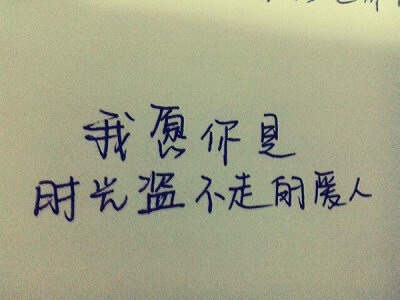 我愿你是
时光盗不走的爱人